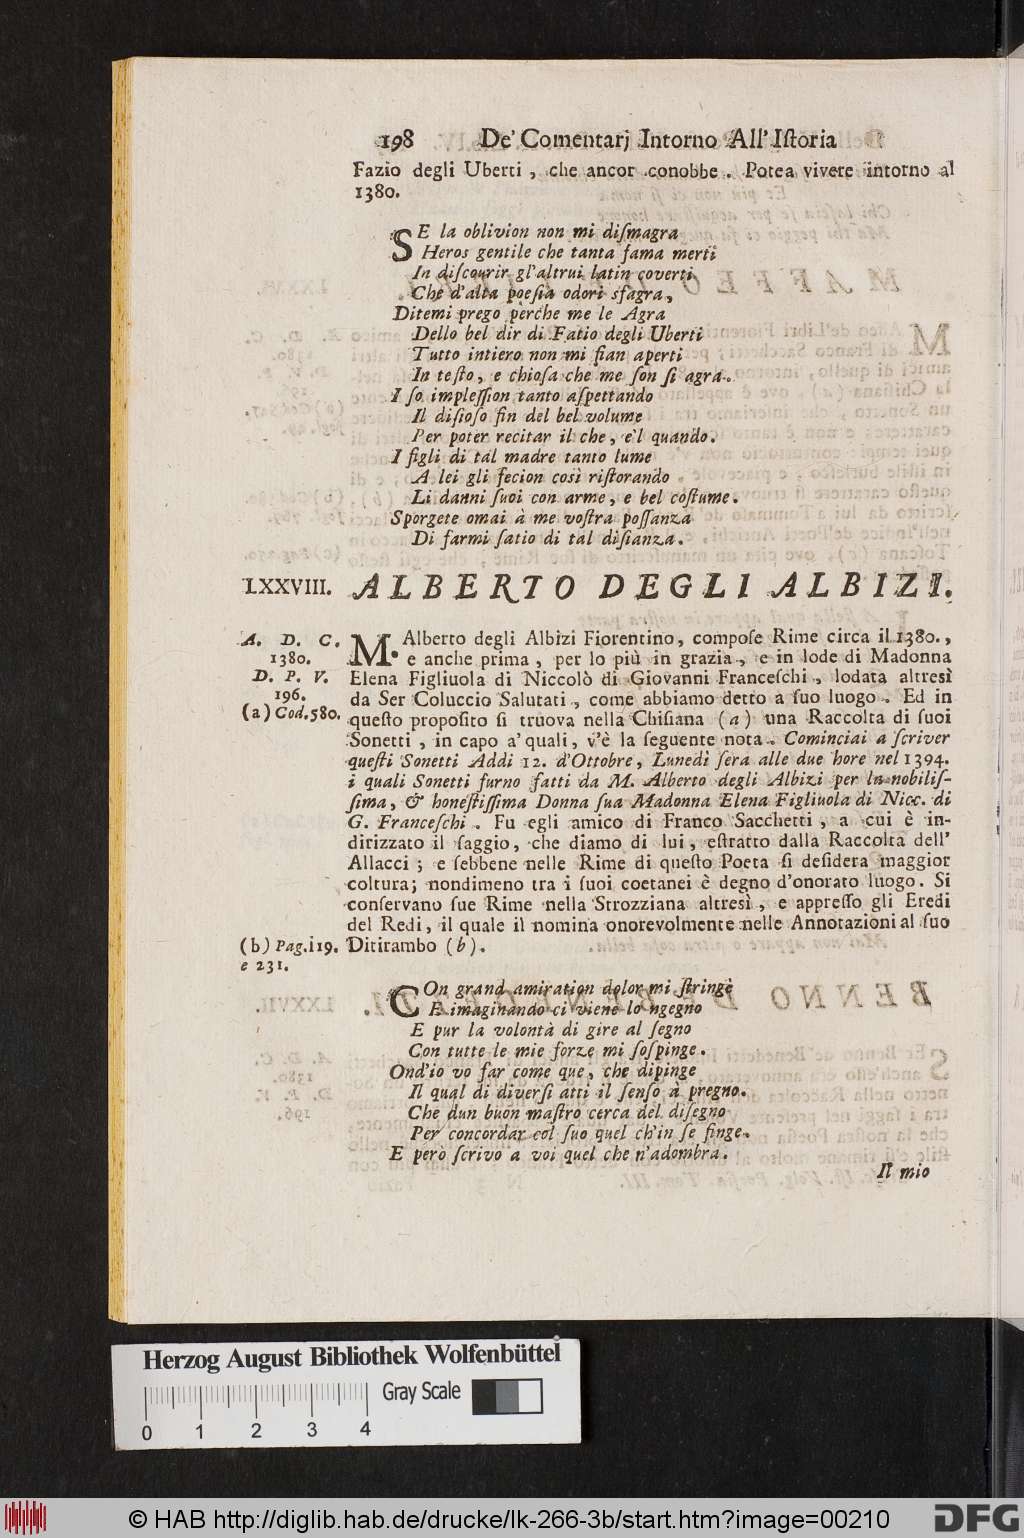 198 De' Comentarj Intorno All' Iſtoria
Fazio degli Uberti, che ancor conobbe. Potea vivere intorno al
1380.
SE la oblivion non mi diſmagra
Heros gentile che tanta fama merti
In diſcourir gl'altrui latin coverti
Che d'alta poeſia odori sfagra,
Ditemi prego perche me le Agra
Dello bel dir di Fatio degli Uberti
Tutto intiero non mi ſian aperti
In teſto, e chioſa che me ſon ſi agra.
I ſo impleſſion tanto aſpettando
Il diſioſo fin del bel volume
Per poter recitar il che, e'l quando.
I figli di tal madre tanto lume
A lei gli fecion così riſtorando
Li danni ſuoi con arme, e bel coſtume.
Sporgete omai à me voſtra poſſanza
Di farmi ſatio di tal diſianza.
LXXVIII. ALBERTO DEGLI ALBIZI.
A. D. C.
1380.
D. P. V.
196.
(a) Cod. 580.
M. Alberto degli Albizi Fiorentino, compoſe Rime circa il 1380.,
e anche prima, per lo più in grazia, e in lode di Madonna
Elena Figliuola di Niccolò di Giovanni Franceſchi, lodata altresì
da Ser Coluccio Salutati, come abbiamo detto a ſuo luogo. Ed in
queſto propoſito ſi truova nella Chiſiana (a) una Raccolta di ſuoi
Sonetti, in capo a' quali, v'è la ſeguente nota. Cominciai a ſcriver
queſti Sonetti Addi 12. d'Ottobre, Lunedì ſera alle due hore nel 1394.
i quali Sonetti furno fatti da M. Alberto degli Albizi per la nobiliſ-
ſima, & honeſtiſſima Donna ſua Madonna Elena Figliuola di Nicc. di
G. Franceſchi. Fu egli amico di Franco Sacchetti, a cui è in-
dirizzato il ſaggio, che diamo di lui, eſtratto dalla Raccolta dell'
Allacci; e ſebbene nelle Rime di queſto Poeta ſi deſidera maggior
coltura; nondimeno tra i ſuoi coetanei è degno d'onorato luogo. Si
conſervano ſue Rime nella Strozziana altresì, e appreſſo gli Eredi
del Redi, il quale il nomina onorevolmente nelle Annotazioni al ſuo
Ditirambo (b).
(b) Pag. 119.
e 231.
COn grand amiration dolor mi ſtringe
E imaginando ci viene lo ngegno
E pur la volontà di gire al ſegno
Con tutte le mie forze mi ſoſpinge.
Ond'io vo far come que, che dipinge
Il qual di diverſi atti il ſenſo à pregno.
Che dun buon maſtro cerca del diſegno
Per concordar col ſuo quel ch'in ſe finge.
E però ſcrivo a voi quel che n'adombra.
Il mio
Herzog August Bibliothek Wolfenbüttel
Gray Scale
0 1 2 3 4
© HAB http://diglib.hab.de/drucke/lk-266-3b/start.htm?image=00210
DFG